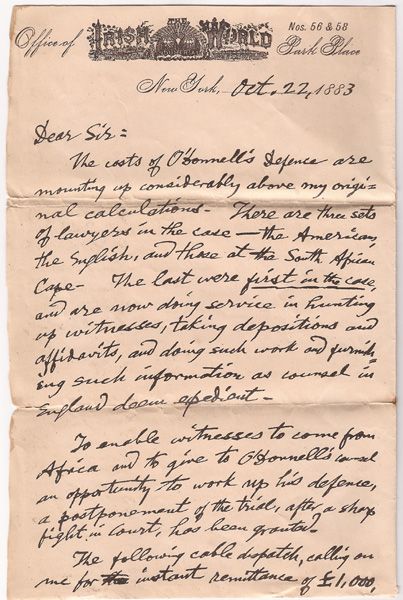 Office of THE IRISH WORLD Nos. 56 & 58
Park Place
New York, Oct. 22, 1883
Dear Sir =
The costs of O'Donnell's Defence are
mounting up considerably above my origi-
nal calculations - There are three sets
of lawyers in the case — the American,
the English, and those at the South African
Cape - The last were first in the case,
and are now doing service in hunting
up witnesses, taking depositions and
affidavits, and doing such work and furnish-
ing such information as counsel in
England deem epedient -
To enable witnesses to come from
Africa and to give to O'Donnell's counsel
an opportunity to work up his defence,
a postponement of the trial, after a sharp
fight in court, has been granted -
The following cable dispatch, calling on
me for instant remittance of £1,000,